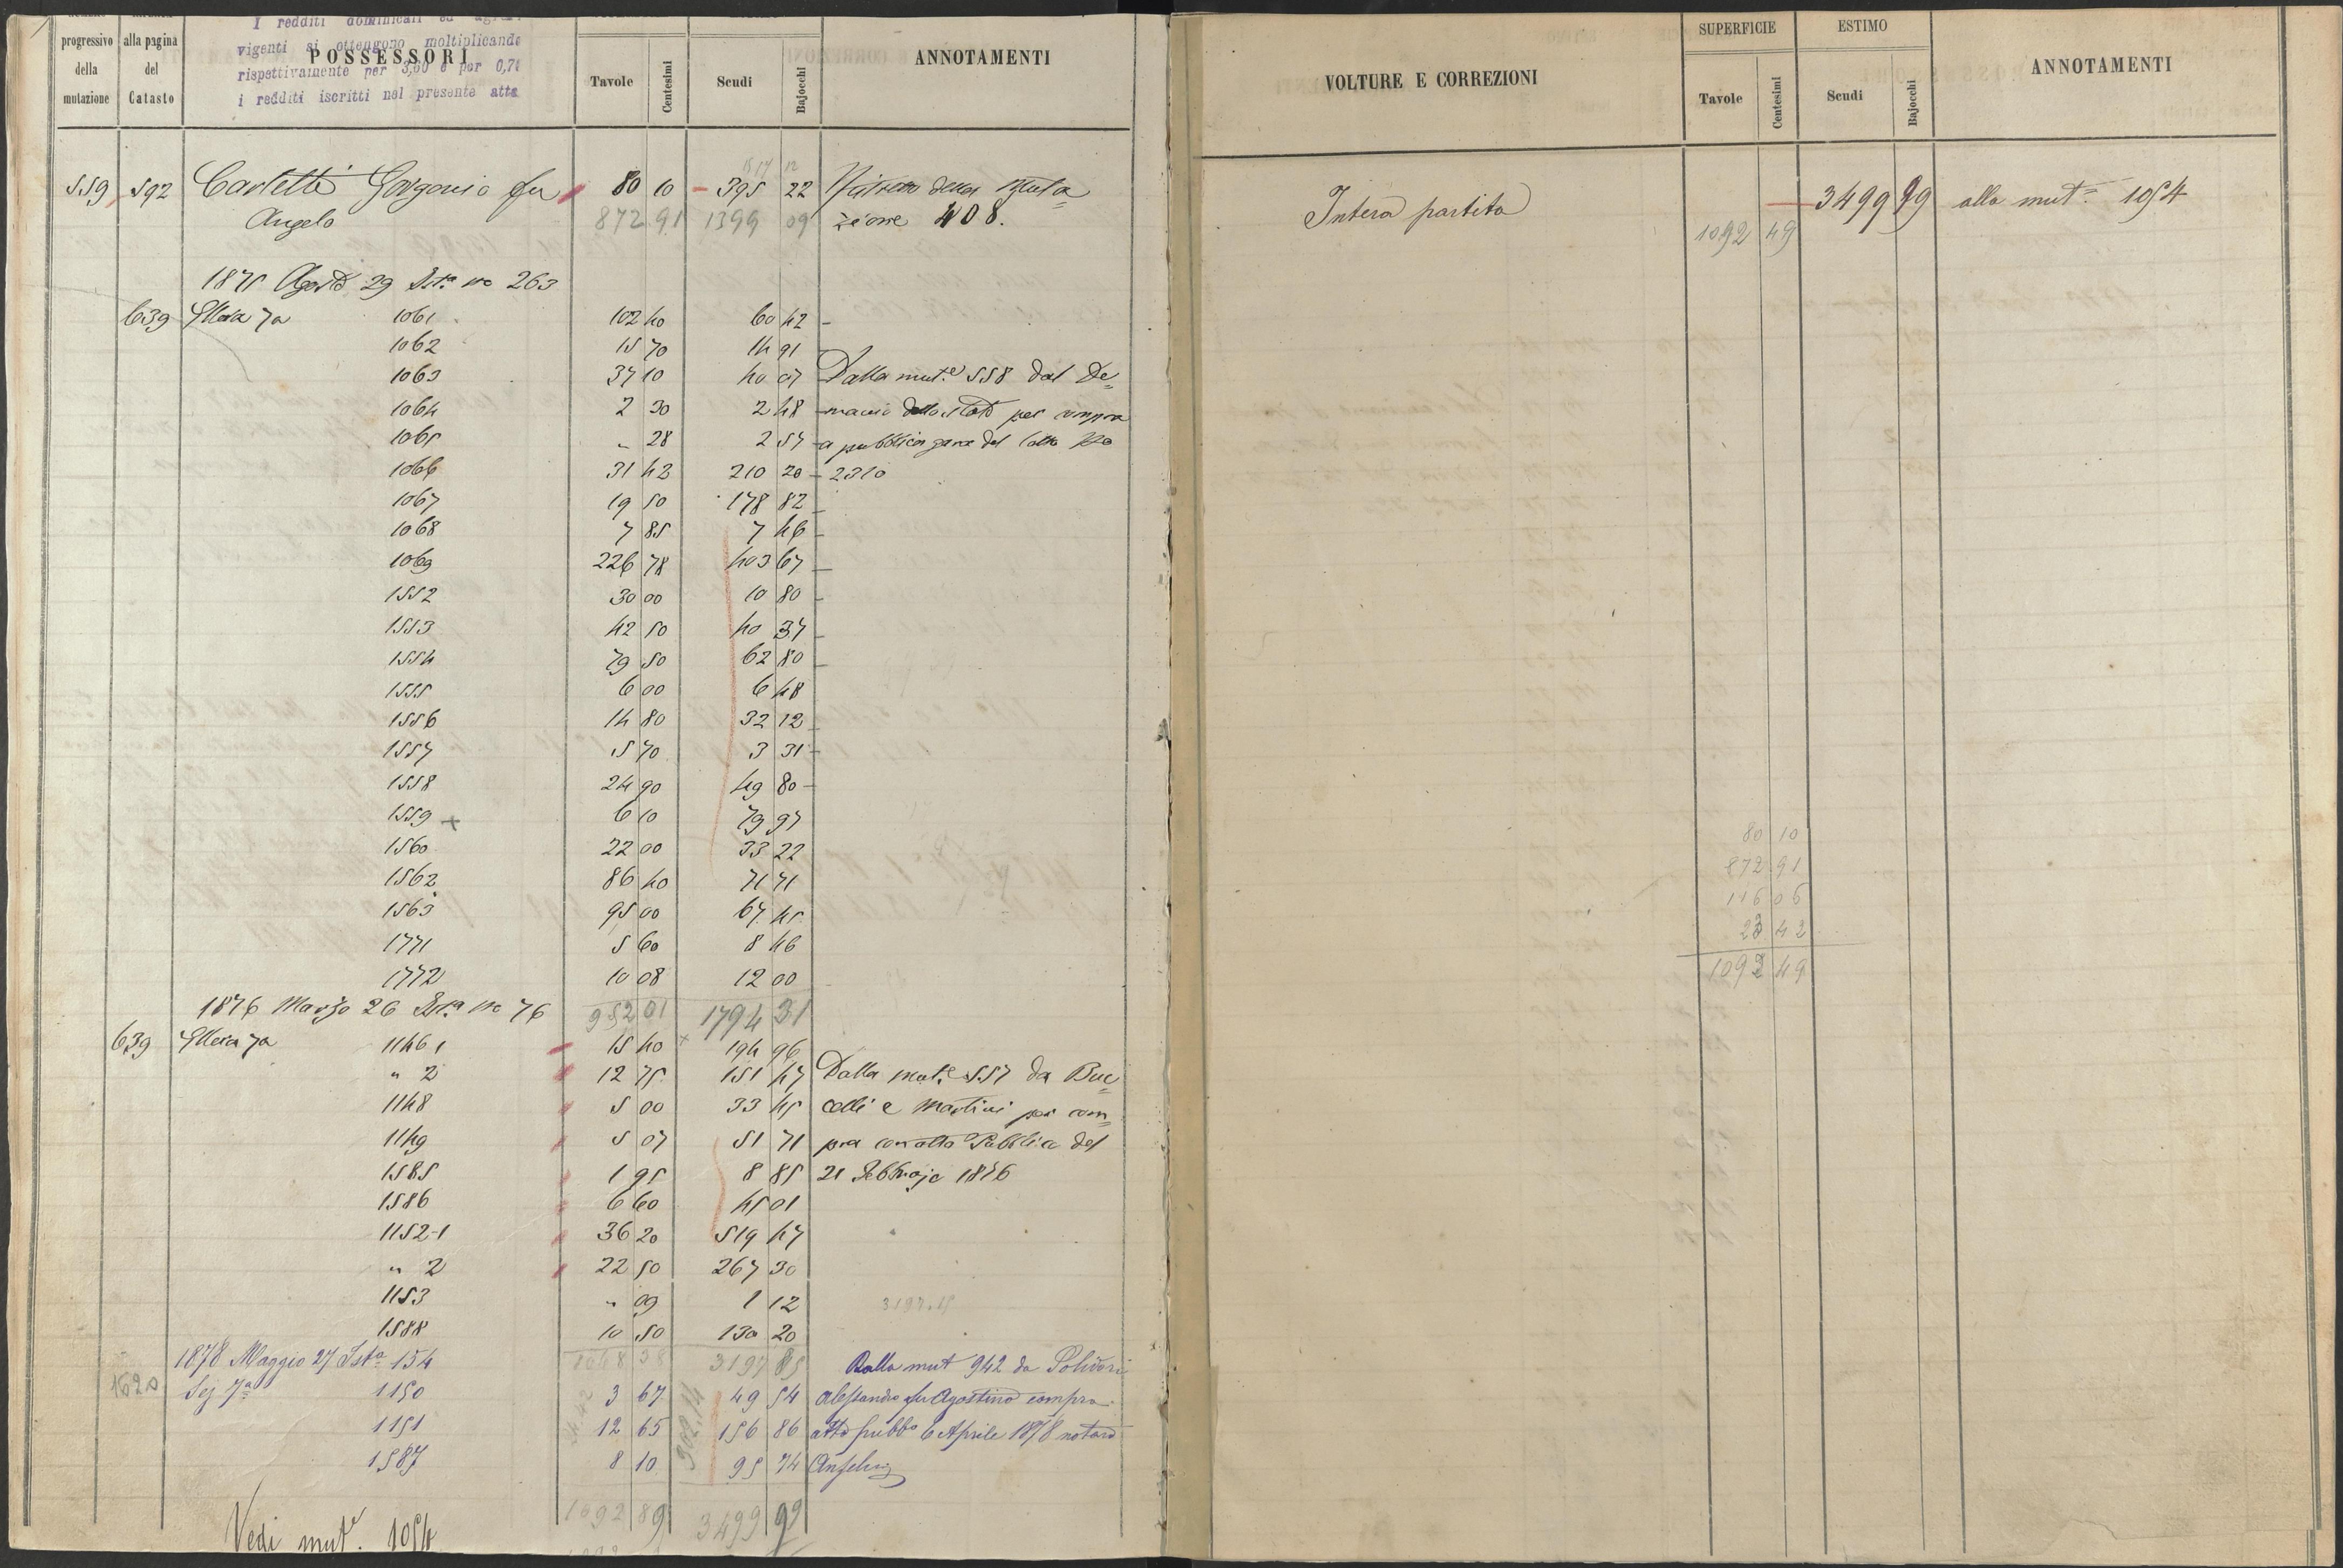 progressivo della mutazione | alla pagina del Catasto | POSSESSORI | Tavole | Centesimi | Scudi | Bajocchi | ANNOTAMENTI
I redditi dominicali ed
vigenti si ottengono moltiplicando
rispettivamente per 3,60 e per 0,7
i redditi iscritti nel presente atto
559 | 592 | Carletti Gorgonio fu | 80 | 10 | 395 | 22 | della Muta=
Angelo | 872 | 91 | 1399 | 09 | zione 408.
1875 Agosto 29 Ista no 263
639 | Mora 7a 1061 | 102 | 40 | 60 | 42
1062 | 15 | 70 | 14 | 91
1063 | 37 | 10 | 40 | 07 | Dalla mut.e 558 dal De=
1064 | 2 | 30 | 2 | 48 | manio dello Stato per compra
1065 | " | 28 | 2 | 57 | a pubblica gara del lotto No
1066 | 31 | 43 | 210 | 20 | 2310
1067 | 19 | 50 | 178 | 82
1068 | 7 | 85 | 7 | 46
1069 | 226 | 78 | 403 | 67
1552 | 30 | 00 | 10 | 80
1553 | 42 | 50 | 40 | 37
1554 | 79 | 50 | 62 | 80
1555 | 6 | 00 | 6 | 48
1556 | 14 | 80 | 32 | 12
1557 | 5 | 70 | 3 | 31
1558 | 24 | 90 | 49 | 80
1559 + | 6 | 10 | 79 | 97
1560 | 22 | 00 | 33 | 22
1562 | 86 | 40 | 71 | 71
1563 | 95 | 00 | 67 | 45
1771 | 5 | 60 | 8 | 46
1772 | 10 | 08 | 12 | 00
1876 Marzo 26 Ista no 76 | 952 | 01 | 1794 | 31
639 | Mora 7a 1146 1 | 15 | 40 | 194 | 96
" 2 | 12 | 75 | 151 | 47 | Dalla mut.e 557 da Buc=
1148 | 5 | 00 | 33 | 45 | celli e Martini per com=
1149 | 5 | 07 | 51 | 71 | pra con atto Pubblico del
1585 | 1 | 95 | 8 | 85 | 21 Febbrajo 1876
1586 | 6 | 60 | 45 | 01
1152-1 | 36 | 20 | 519 | 47
" 2 | 22 | 50 | 267 | 30
1153 | " | 09 | 1 | 12 | 3197.85
1588 | 10 | 50 | 130 | 20
1878 Maggio 27 Ista 154 | 1068 | 38 | 3197 | 85 | Dalla mut 942 da Polidori
Sej 7a 1150 | 3 | 67 | 49 | 54 | Alessandro fu Agostino compra
1151 | 12 | 65 | 156 | 86 | atto pubbo 6 Aprile 1878 notaro
1587 | 8 | 10 | 95 | 74
24.42
302.14
1092 | 89 | 3499 | 99
Vedi mute. 1054
VOLTURE E CORREZIONI | SUPERFICIE | ESTIMO | ANNOTAMENTI
Tavole | Centesimi | Scudi | Bajocchi
Intera partita | 3499 | 99 | alla mut.e 1054
1092 | 49
80 | 10
872 | 91
116 | 06
23 | 42
1092 | 49